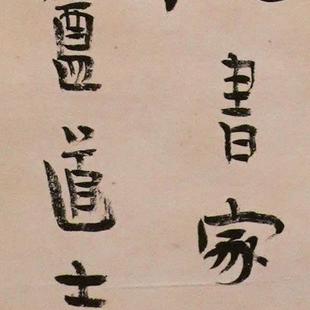 書家
盦道士